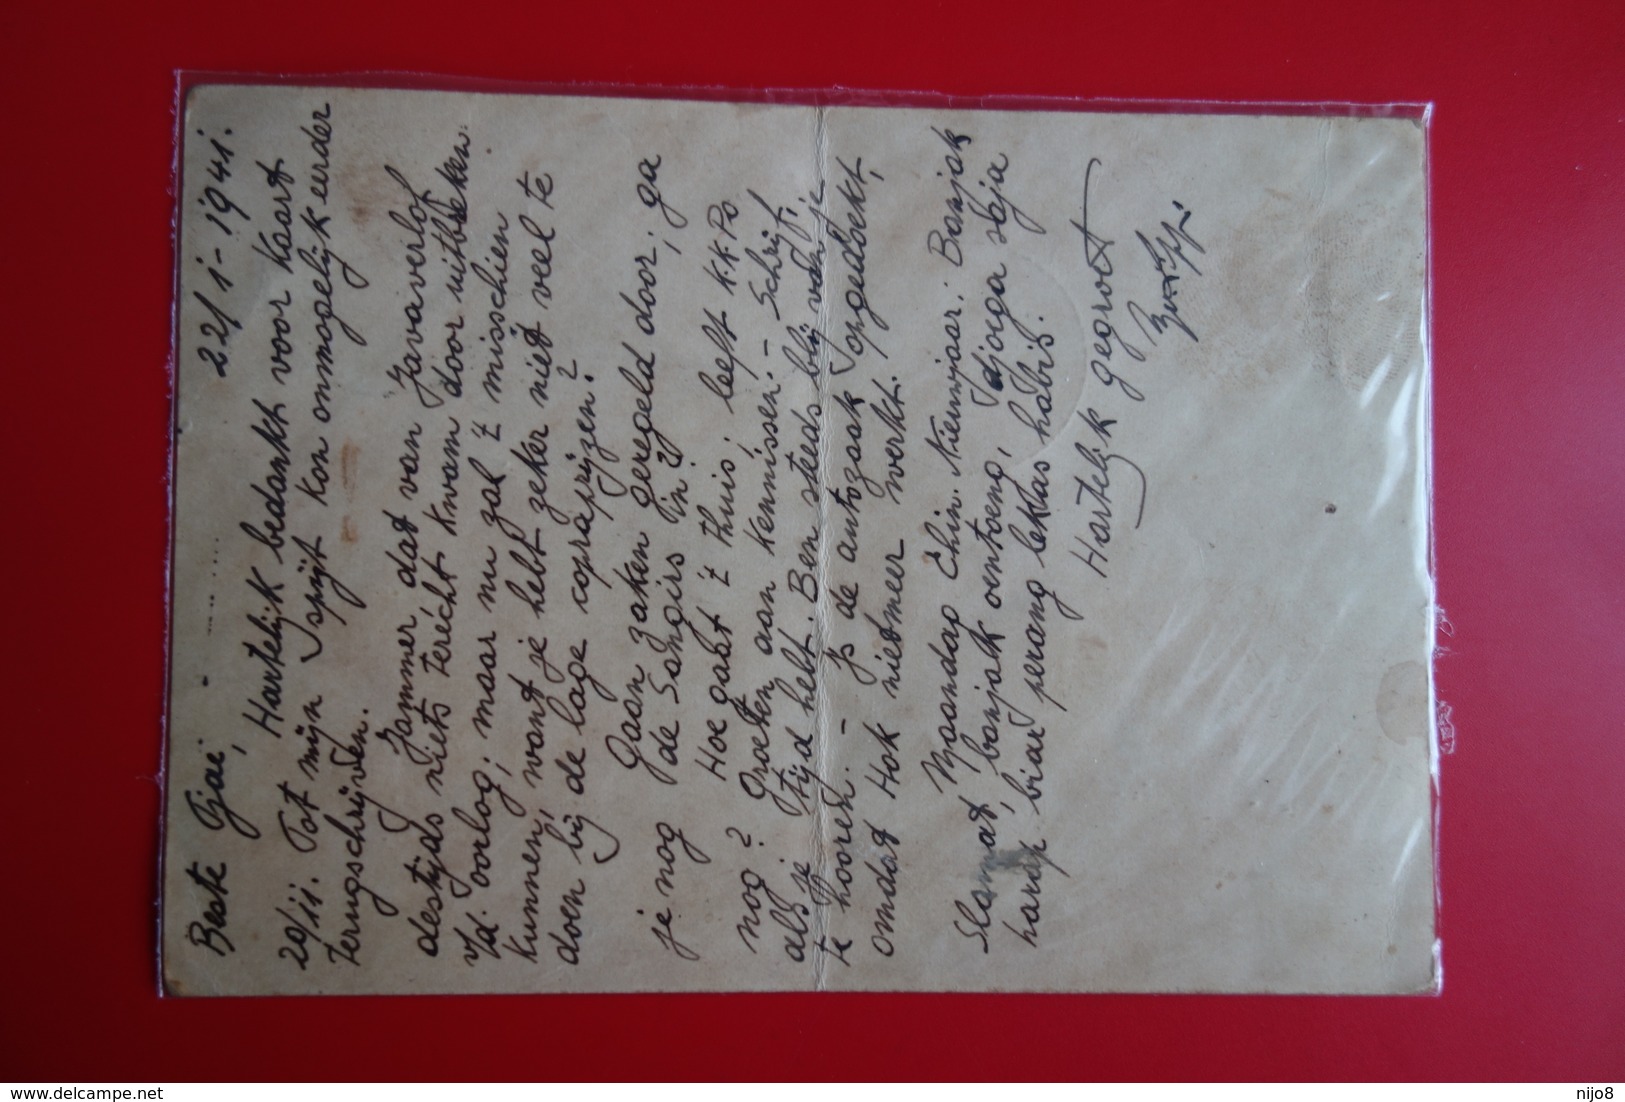 22/1-1941.
Beste Tjae,
Hartelijk bedankt voor kaart
20/11. Tot mijn spijt kon onmogelijk eerder
terugschrijven.
Jammer dat van Javaverlof
destijds niets terecht kwam door uitbreken
v/d. oorlog; maar nu zal 't misschien
kunnen, want je hebt zeker niet veel te
doen bij de lage copraprijzen?
Gaan zaken geregeld door; ga
je nog de Sangirs in?
Hoe gaat 't thuis; leeft K.K. Po
nog? Groeten aan kennissen. - Schrijf,
als je tijd hebt. Ben steeds blij van je
te hooren. - Is de autozaak opgedoekt,
omdat Hok niet meer werkt.
Maandag Chin. Nieuwjaar. Banjak
Slamat, banjak oentoeng, djoega saja
harap biar perang lekas habis.
Hartelijk gegroet
nijo8